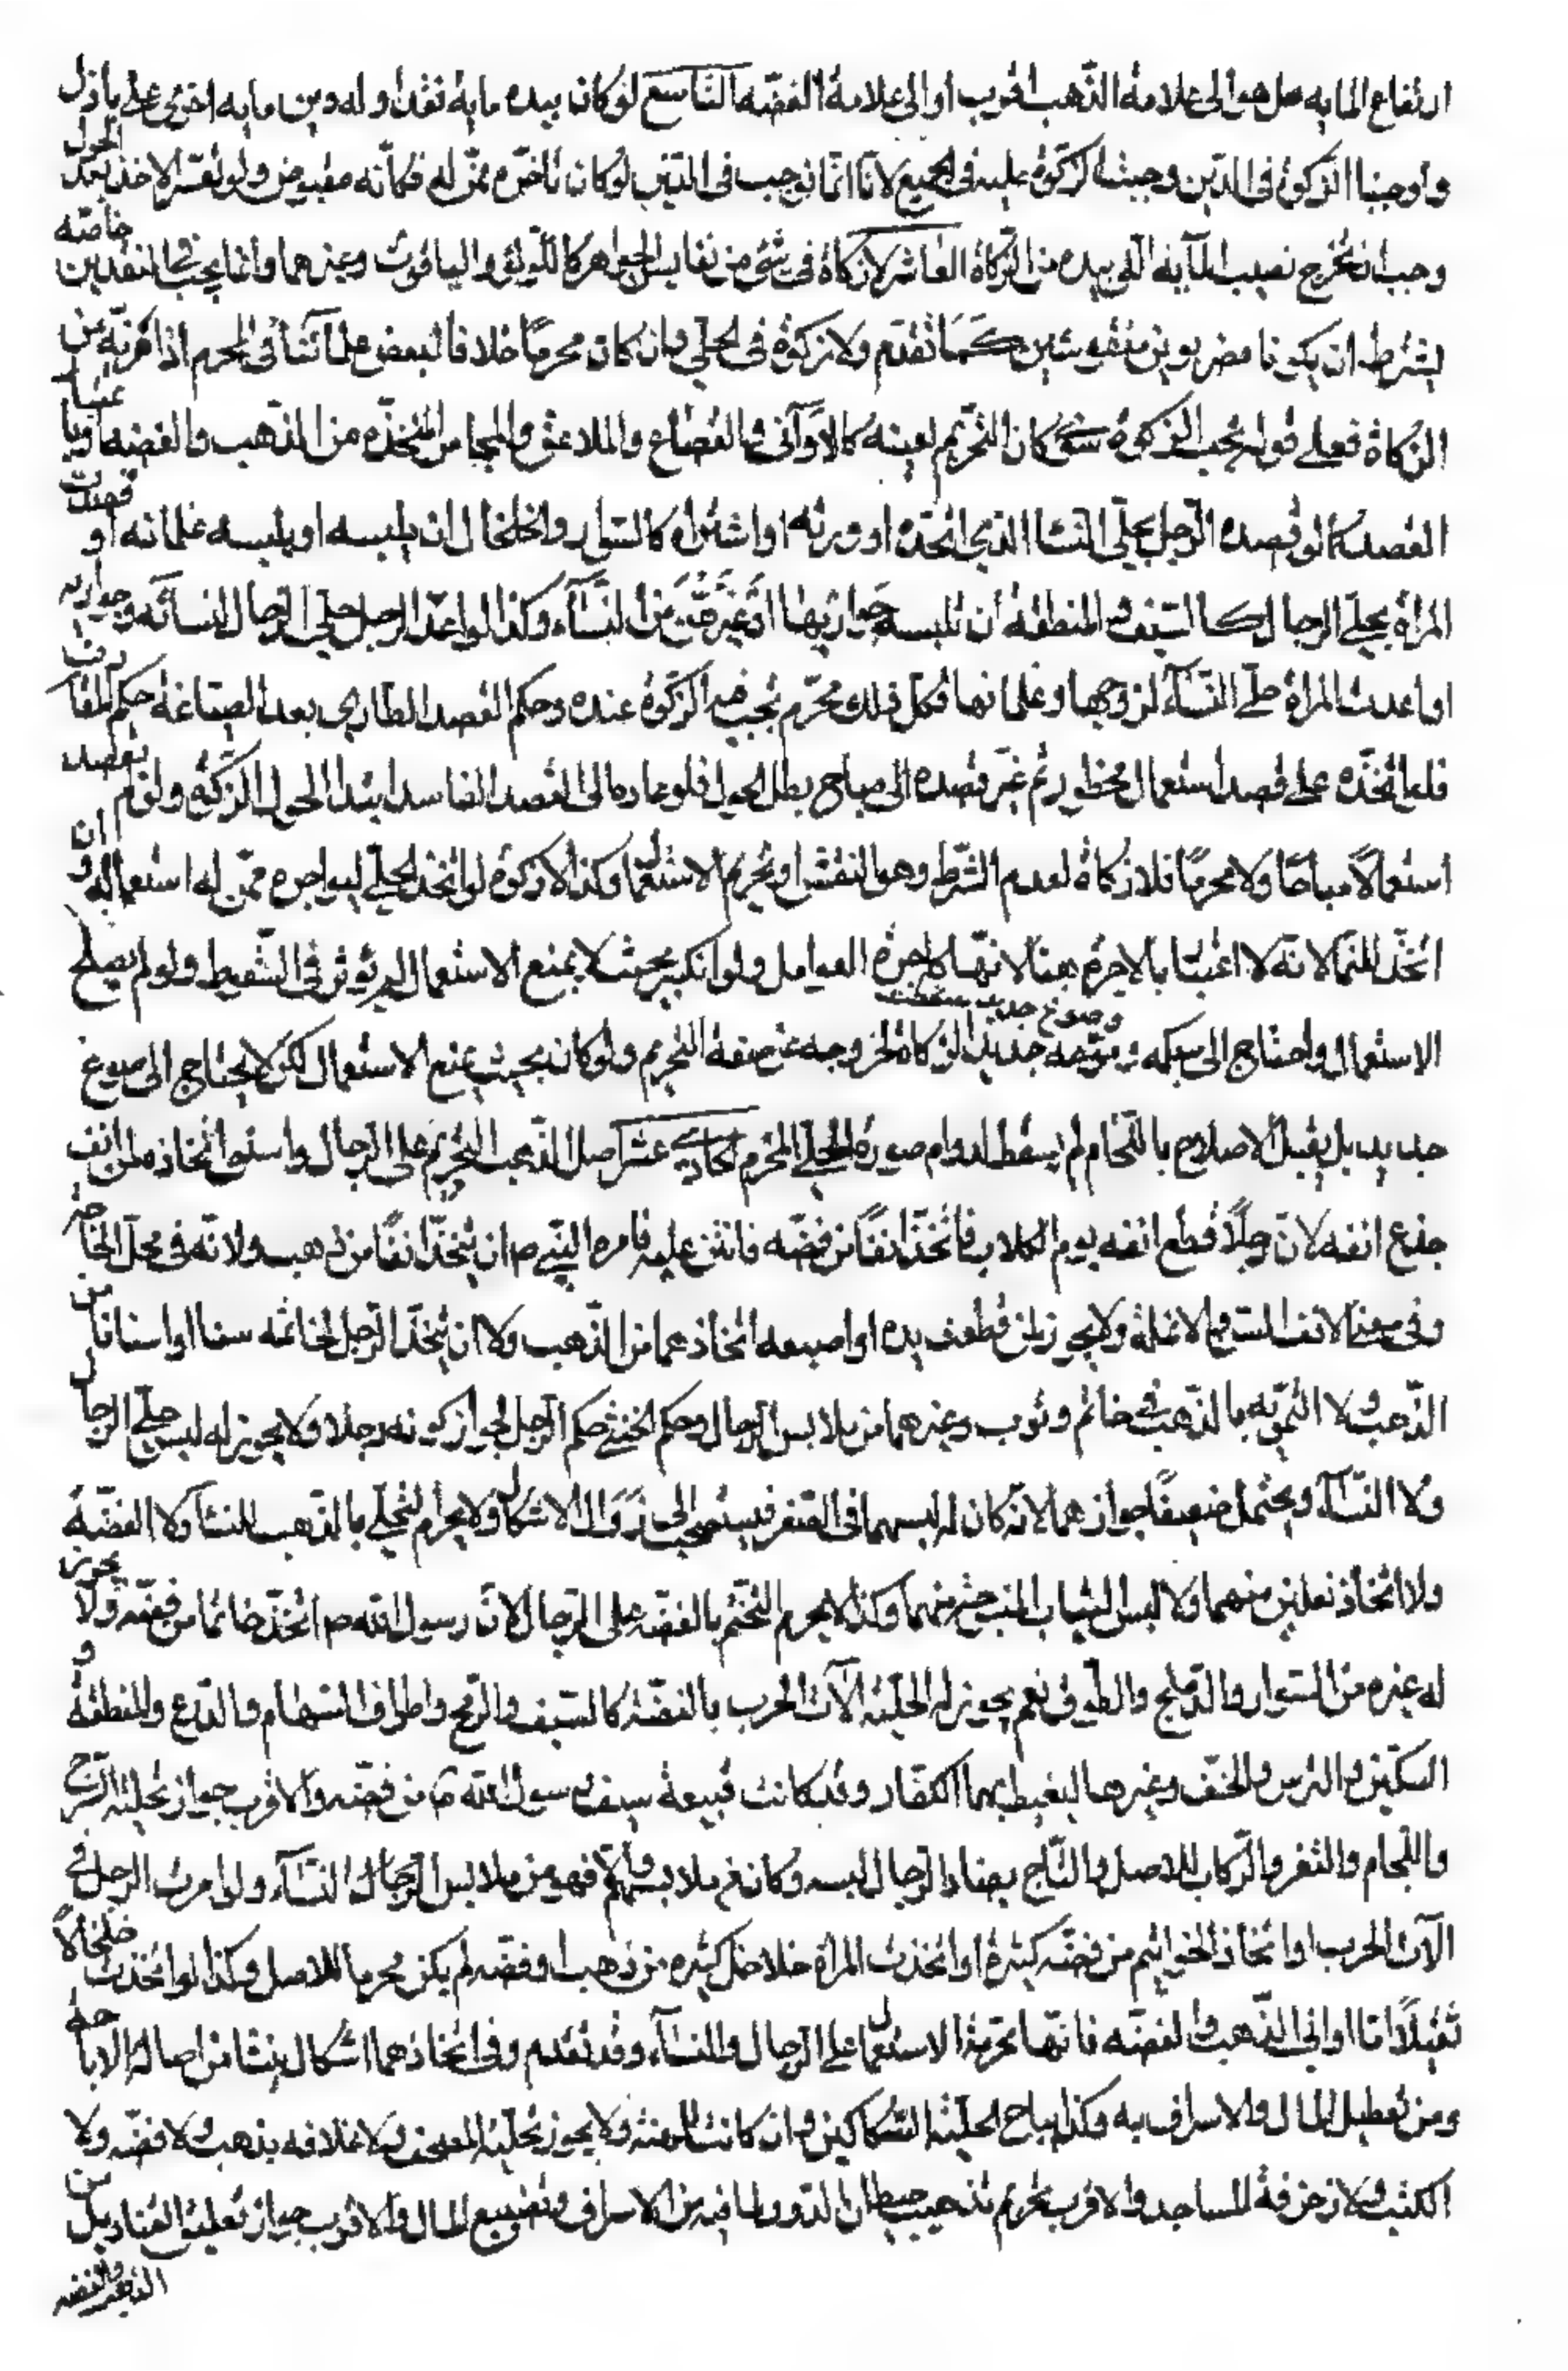 ارتفاع المايه هل هو الى علامة الذهب اقرب او الى علامة الفضه التاسع لو كان بيده مايه نقدا وله دين مايه اخرى على باذل
واوجبنا الزكوة فى الدّين وجبت الزكوة عليه فى الجميع لانا انما نوجب فى الدين لو كان تاخره ممّن له فكأنّه مقبوض ولو تعسّر الاخذ بعد الحول
وجب ان تخرج نصيب المآية التى بيده من الزكاة العاشر لا زكاة فى شئ من نفايس الجواهر كاللّؤلؤ والياقوت وغيرهما وانما يجب فى النقدين خاصّه
بشرط ان يكونا مضروبين منقوشين كما تقدم ولا زكوة فى الحلي وان كان محرمًا خلافا لبعض علمآئنا فى المحرم اذا فرّ به من
الزكاة فعلى قوله تجب الزكوة سوى كان التحريم لعينه كالاوآنى والقصاع والملاعق والمجامر المتخذه من الذهب والفضه او باعتبار
القصد كما لو قصده الرجل بحلي النسا الذي اتخذه او ورثه او اشتراه كالسوار والخلخال ان يلبسه او يلبسه غلمانه او قصدت
المراة بحلي الرجال كالسيف والمنطقة ان تلبسه جواريها او غيرهن من النسآء وكذا لو اعد الرجل حلي الرجال لنسائه وجواريه
او اعدت المراة حلي النسآء لزوجها وغلمانها فكل ذلك محرّم تجب فيه الزكوة عنده وحكم القصد الطاري بعد الصياغة حكم المقارن
فلو اتخذه على قصد استعمال محظور ثم غير قصده الى مباح بطل الحول فلو عاد الى القصد الفاسد ابتدا الحول الزكوة ولو لم يقصد
استعمالا مباحا ولا محرمًا فلا زكاة لعدم الشرط وهو النقش او تحريم الاستعمال وكذا لا زكوة لو اتخذ الحلي ليواجره ممّن له استعماله وان
اتخذ للنما لانه لا اعتبار بالاجرة هنا لانها كاجرة العوامل ولو انكسر بحيث لا يمنع الاستعمال لم يؤثر فى السقيط ولو لم يصلح
الاستعمال واحتاج الى سبكه وصوغ جديد سقطت الزكاة لخروجه عن صفة التحريم ولو كان بحيث يمنع الاستعمال لكن لا يحتاج الى صوغ
جديد بل يقبل الاصلاح بالالتحام لم يسقط لدوام صورة الحلي المحرم الحادى عشر اصل الذهب التحريم على الرجال واستثنوا اتخاذه لمن انف
جذع انفه لان رجلًا قطع انفه يوم الكلاب فاتخذ انفًا من فضّه فانتن عليه فامره النبي ص ان يتخذ انفًا من ذهب ولانّه فى محل الحاجه
وفى معنى الانف السن والانملة ولا يجوز لمن قطعت يده او اصبعه اتخاذهما من الذهب ولا ان يتخذ الرجل لخاتمه سنا او اسنانا من
الذهب ولا التمويه بالذهب فى خاتم وثوب وغيرهما من ملابس الرجال وحكم الخنثى حكم الرجل لجواز كونه رجلا ولا يجوز له لبس حلي الرجال
ولا النسآء ويحتمل ضعيفًا جوازهما لانّه كان له لبسهما فى الصغر فيستصحب الى زوال الاشكال ولا يحرم التحلي بالذهب للنسا ولا الفضّة
ولا اتخاذ نعلين منهما ولا لبس الثياب المنسوجة منهما وكذا لا يحرم التختّم بالفضّه على الرجال لان رسول الله ص اتخذ خاتما من فضّة ولا يجوز
له غيره من السوار والدملج والطوق نعم يجوز له الحلية لآلات الحرب بالفضّة كالسيف والرمح واطراف السهام والدرع والمنطقة و
السكين والترس والخف وغيرها ليغيظ بها الكفار وقد كانت قبيعة سيف رسول الله ص من فضّه والاقرب جواز تحلية السرج
واللجام والثفر والركاب للاصل والتاج يعتاد الرجال لبسه وكان من ملابسهم والا فهو من ملابس الرجال والنسآء ولو امرت الرجل فى
آلات الحرب او اتخاذ الخواتيم من فضّه كثيرة او اتخذت المراة خلاخل كثيره من ذهب او فضّه لم يكن محرما للاصل وكذا لو اتخذت خلخالاً
ثقيلاً اما اوانى الذهب والفضّه فانها محرمة الاستعمال على الرجال والنسآء وقد تقدم وفى اتخاذهما اشكال ينشا من اصالة الاباحة
ومن تعطيل المال والاسراف به وكذا يباح تحلية السكاكين وان كانت للمهنة ولا يجوز تحلية المصحف ولا غلافه بذهب ولا فضّه ولا
الكتب ولا زخرفة المساجد والاقرب تحريم تذهيب حيطان الدور لما فيه من الاسراف وتضييع المال والاقرب جواز تعليق القناديل من
الذهب والفضه